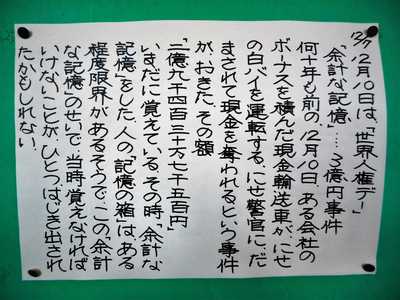 12/7
12月10日は、「世界人権デー」
「余計な記憶」……3億円事件
何十年も前の、12月10日、ある会社の
ボーナスを積んだ現金輸送車が、にせ
の白バイを運転する、にせ警官に、だ
まされて現金を奪われる、という事件
が、おきた。その額
「二億九千四百三十万七千五百円」
いまだに覚えている。その時「余計な
記憶」をした。人の「記憶の箱」は、ある
程度限界があるそうで、この「余計
な記憶」のせいで、当時覚えなければ
いけないことが、ひとつ、はじき出され
たかもしれない。